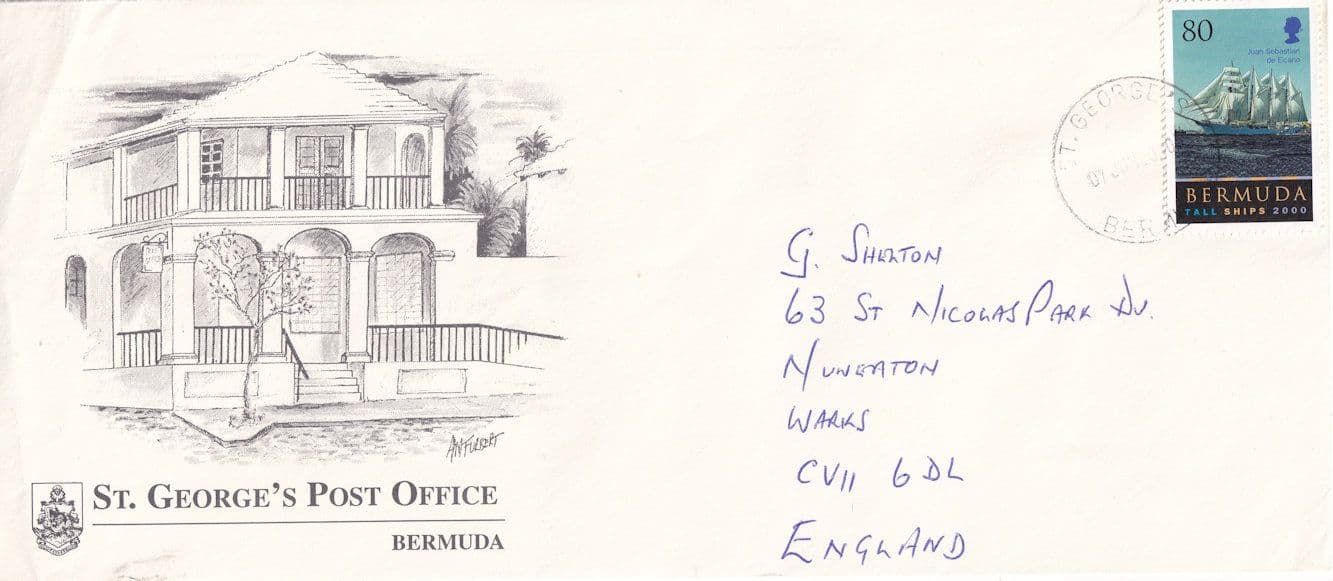 80
Juan Sebastian
de Elcano
BERMUDA
TALL SHIPS 2000
ST. GEORGE'S
07
BER
G. SHELTON
63 ST NICOLAS PARK DV.
NUNEATON
WARKS
CV11 6DL
ENGLAND
ST. GEORGE'S POST OFFICE
BERMUDA